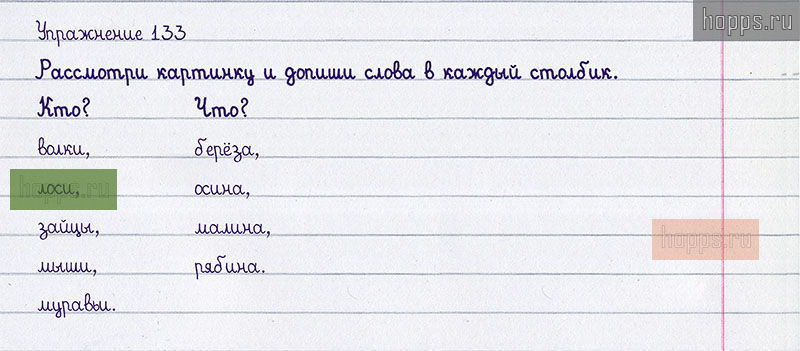 hopps.ru
Упражнение 133
Рассмотри картинку и допиши слова в каждый столбик.
Кто? Что?
волки, берёза,
лоси, осина,
hopps.ru
зайцы, малина,
hopps.ru
мыши, рябина.
муравьи.